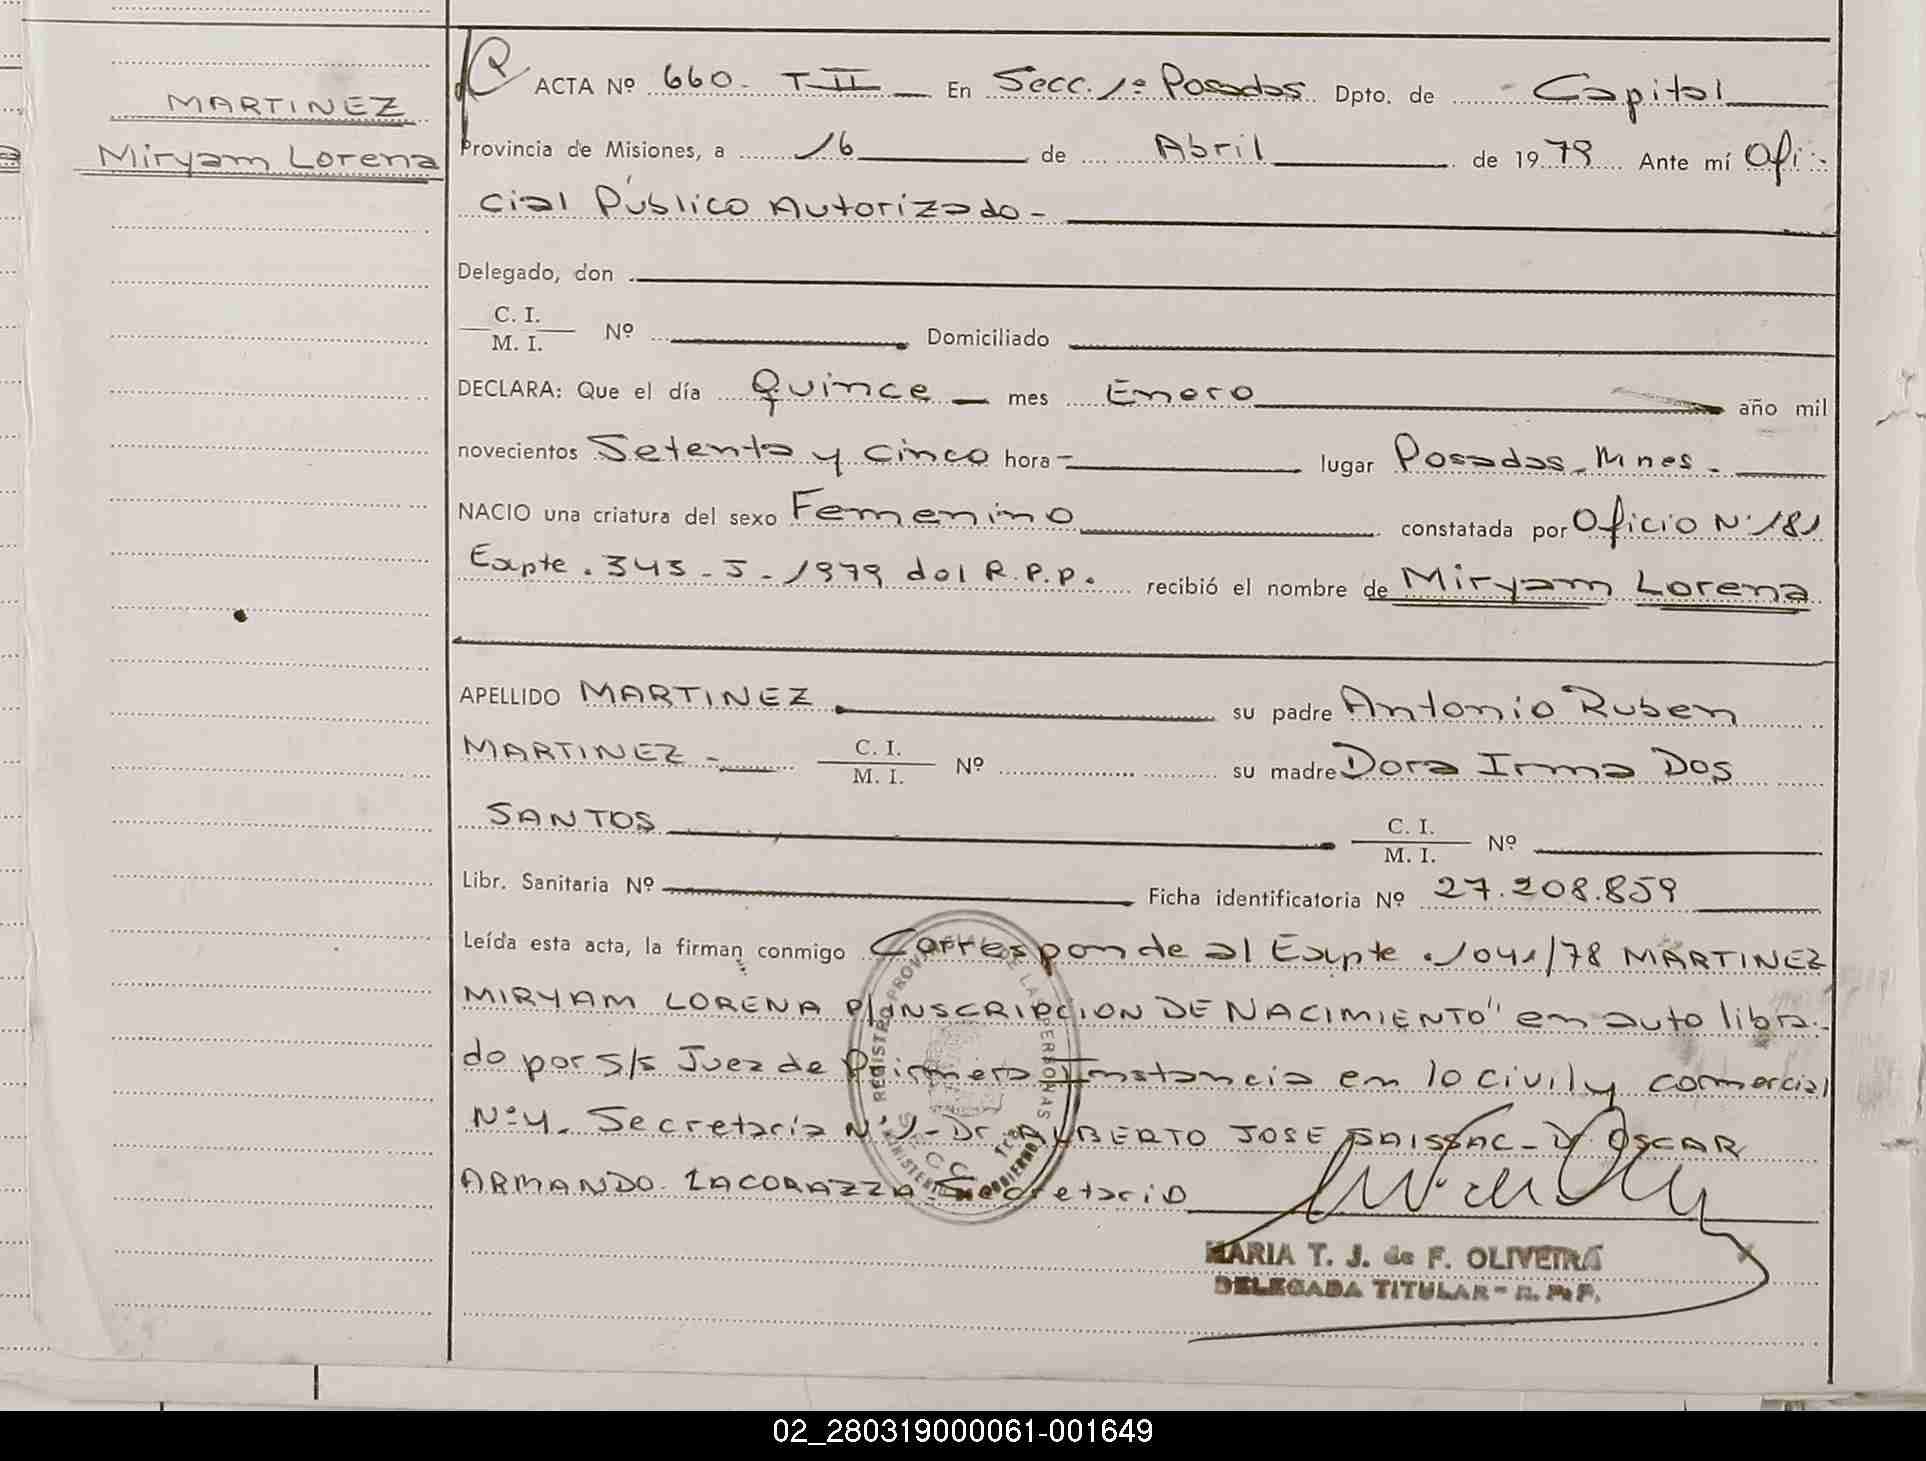 MARTINEZ
Miryam Lorena
ACTA Nº 660 - T II En Secc. 1º Posadas Dpto. de Capital
Provincia de Misiones, a 16 de Abril de 1979 Ante mí Ofi-
cial Público Autorizado -
Delegado, don
C. I.
M. I. Nº Domiciliado
DECLARA: Que el día Quince mes Enero año mil
novecientos Setenta y Cinco hora - lugar Posadas - Mnes -
NACIO una criatura del sexo Femenino constatada por Oficio Nº 181
Expte. 343 - J - 1979 del R.P.P. recibió el nombre de Miryam Lorena
APELLIDO MARTINEZ su padre Antonio Ruben
MARTINEZ - C. I. M. I. Nº su madre Dora Irma Dos
SANTOS C. I. M. I. Nº
Libr. Sanitaria Nº Ficha identificatoria Nº 27.208.859
Leída esta acta, la firman conmigo Corresponde al Expte. 1041/78 MARTINEZ
MIRYAM LORENA P/INSCRIPCION DE NACIMIENTO" en auto libra-
do por S/S Juez de Primera Instancia en lo civil y comercial
Nº 4. Secretaría Nº - Dr ALBERTO JOSE - Dr. OSCAR
ARMANDO - Secretario
REGISTRO PROVINCIAL DE LAS PERSONAS
SECC. 1ra
MINISTERIO GOBIERNO
MARIA T. J. de F. OLIVEIRA
DELEGADA TITULAR - R. P. P.
02_280319000061-001649